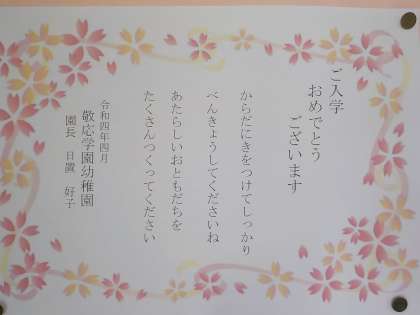 ご入学
おめでとう
ございます
からだにきをつけてしっかり
べんきょうしてくださいね
あたらしいおともだちを
たくさんつくってください
令和四年四月
敬応学園幼稚園
園長　日置　好子